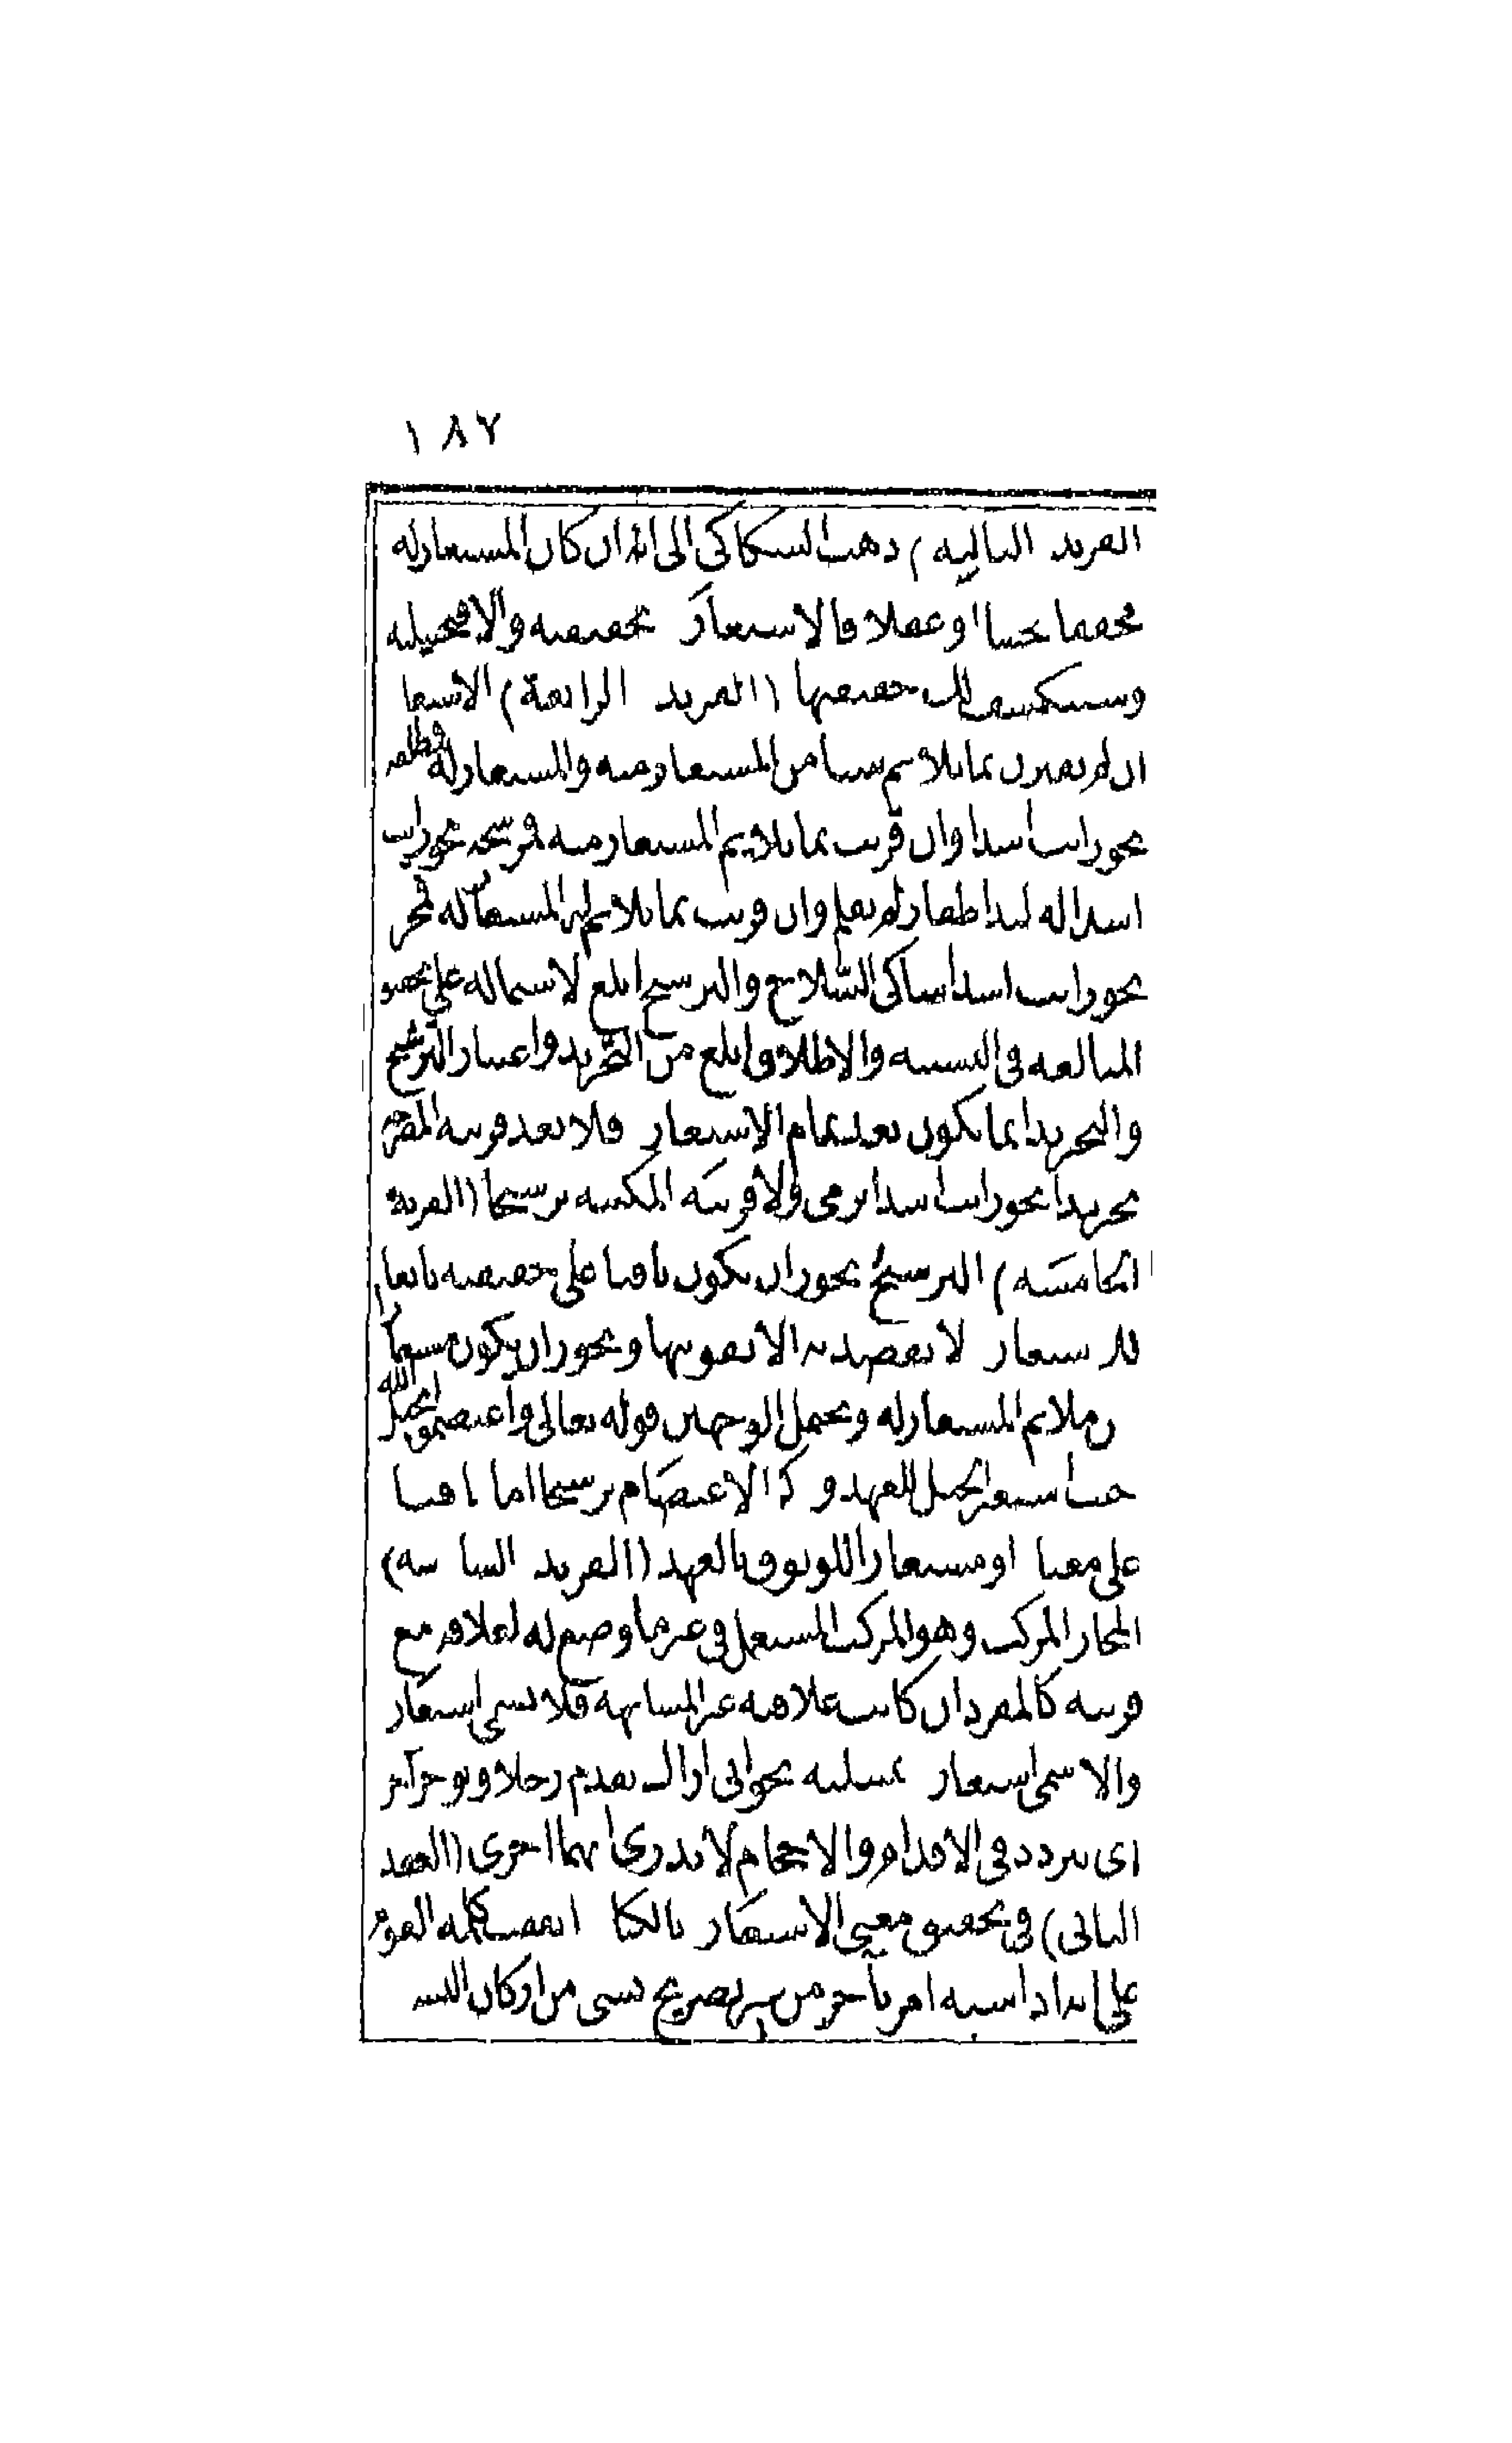 ١٨٧
الفريدة الثالثة) ذهب السكاكى الى انه ان كان المستعار له
محققا حسا او عقلا فالاستعارة تحقيقية والا فتخييلية
وستنكشف لك حقيقتها (الفريدة الرابعة) الاستعارة
ان لم تقترن بما يلائم شيئا من المستعار منه والمستعار له فمطلقة
نحو رايت اسدا وان قرنت بما يلائم المستعار منه فمرشحة نحو رايت
اسدا له لبد اظفاره لم تقلم وان قرنت بما يلائم المستعار له فمجردة
نحو رايت اسدا شاكى السلاح والترشيح ابلغ لاشتماله على تحقيق
المبالغة فى التشبيه والاطلاق ابلغ من التجريد واعتبار الترشيح
والتجريد انما يكون بعد تمام الاستعارة فلا تعد قرينة المصرحة
تجريدا نحو رايت اسدا يرمى ولا قرينة المكنية ترشيحا (الفريدة
الخامسة) الترشيح يجوز ان يكون باقيا على حقيقته تابعا
للاستعارة لا يقصد به الا تقويتها ويجوز ان يكون مستعارا
من ملائم المستعار له ويحتمل الوجهين قوله تعالى واعتصموا بحبل الله
حيث استعير الحبل للعهد وذكر الاعتصام ترشيحا اما باقيا
على معناه او مستعارا للوثوق بالعهد (الفريدة السادسة)
المجاز المركب وهو المركب المستعمل فى غير ما وضع له لعلاقة مع
قرينة كالمفرد ان كانت علاقته غير المشابهة فلا يسمى استعارة
والا سمى استعارة تمثيلية نحو انى اراك تقدم رجلا وتؤخر اخرى
اى تتردد فى الاقدام والاحجام لا تدرى ايهما احرى (العقد
الثانى) فى تحقيق معنى الاستعارة بالكناية اتفقت كلمة القوم
على انه اذا شبه امر بآخر من غير تصريح بشىء من اركان التشبيه